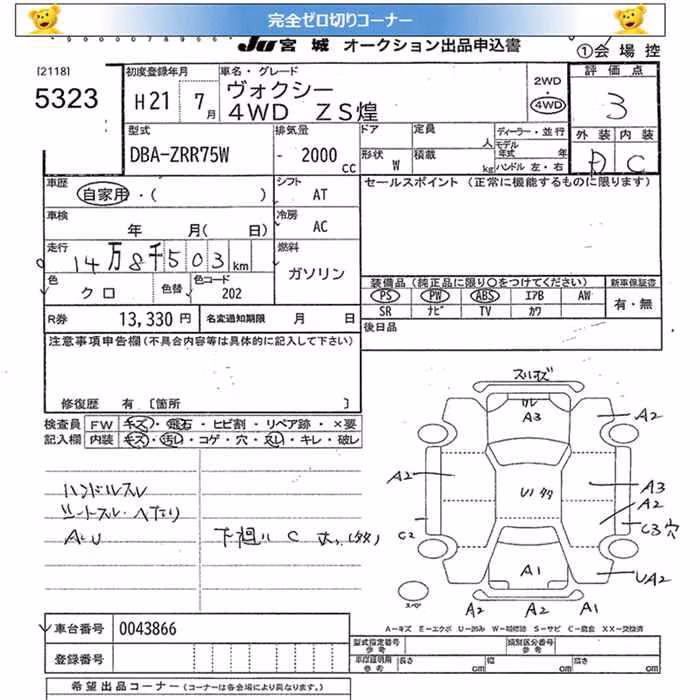 完全ゼロ切りコーナー
JU 宮城 オークション出品申込書
①会場控
[2118]
5323
初度登録年月
H21 7月
車名・グレード
ヴォクシー
4WD ZS煌
2WD・4WD
評価点
3
外装 内装
D C
型式
DBA-ZRR75W
排気量
- 2000 cc
ドア
定員 人
ディーラー・並行
モデル年式 年
形状 W
積載 kg
ハンドル 左・右
車歴
自家用・( )
シフト
AT
セールスポイント (正常に機能するものに限ります)
車検
年 月(日)
冷房
AC
走行
14万8千503km
燃料
ガソリン
色
クロ
色替
色コード
202
装備品 (純正品に限り○をつけてください)
新車保証書
PS PW ABS エアB AW
有・無
SR ナビ TV カワ
R券 13,330円
名変通知期限 月 日
後日品
注意事項申告欄(不具合内容等は具体的に記入して下さい)
修復歴 有 〔箇所 〕
検査員 FW キズ・飛石・ヒビ割・リペア跡・×要
記入欄 内装 キズ・汚し・コゲ・穴・スレ・キレ・破レ
ハンドルスレ
シートスレ・ヘタリ
スリキズ
A3
A2
A2
A3
A2
C2
C3穴
A1
UA2
A2 A2 A1
スペア
A－キズ E－エクボ U－凹み W－補修跡 S－サビ C－腐食 XX－交換済
車台番号 0043866
登録番号
型式指定番号 参考
類別区分番号 参考
長さ cm 幅 cm 高さ cm
希望出品コーナー (コーナーは各会場により異なります。)